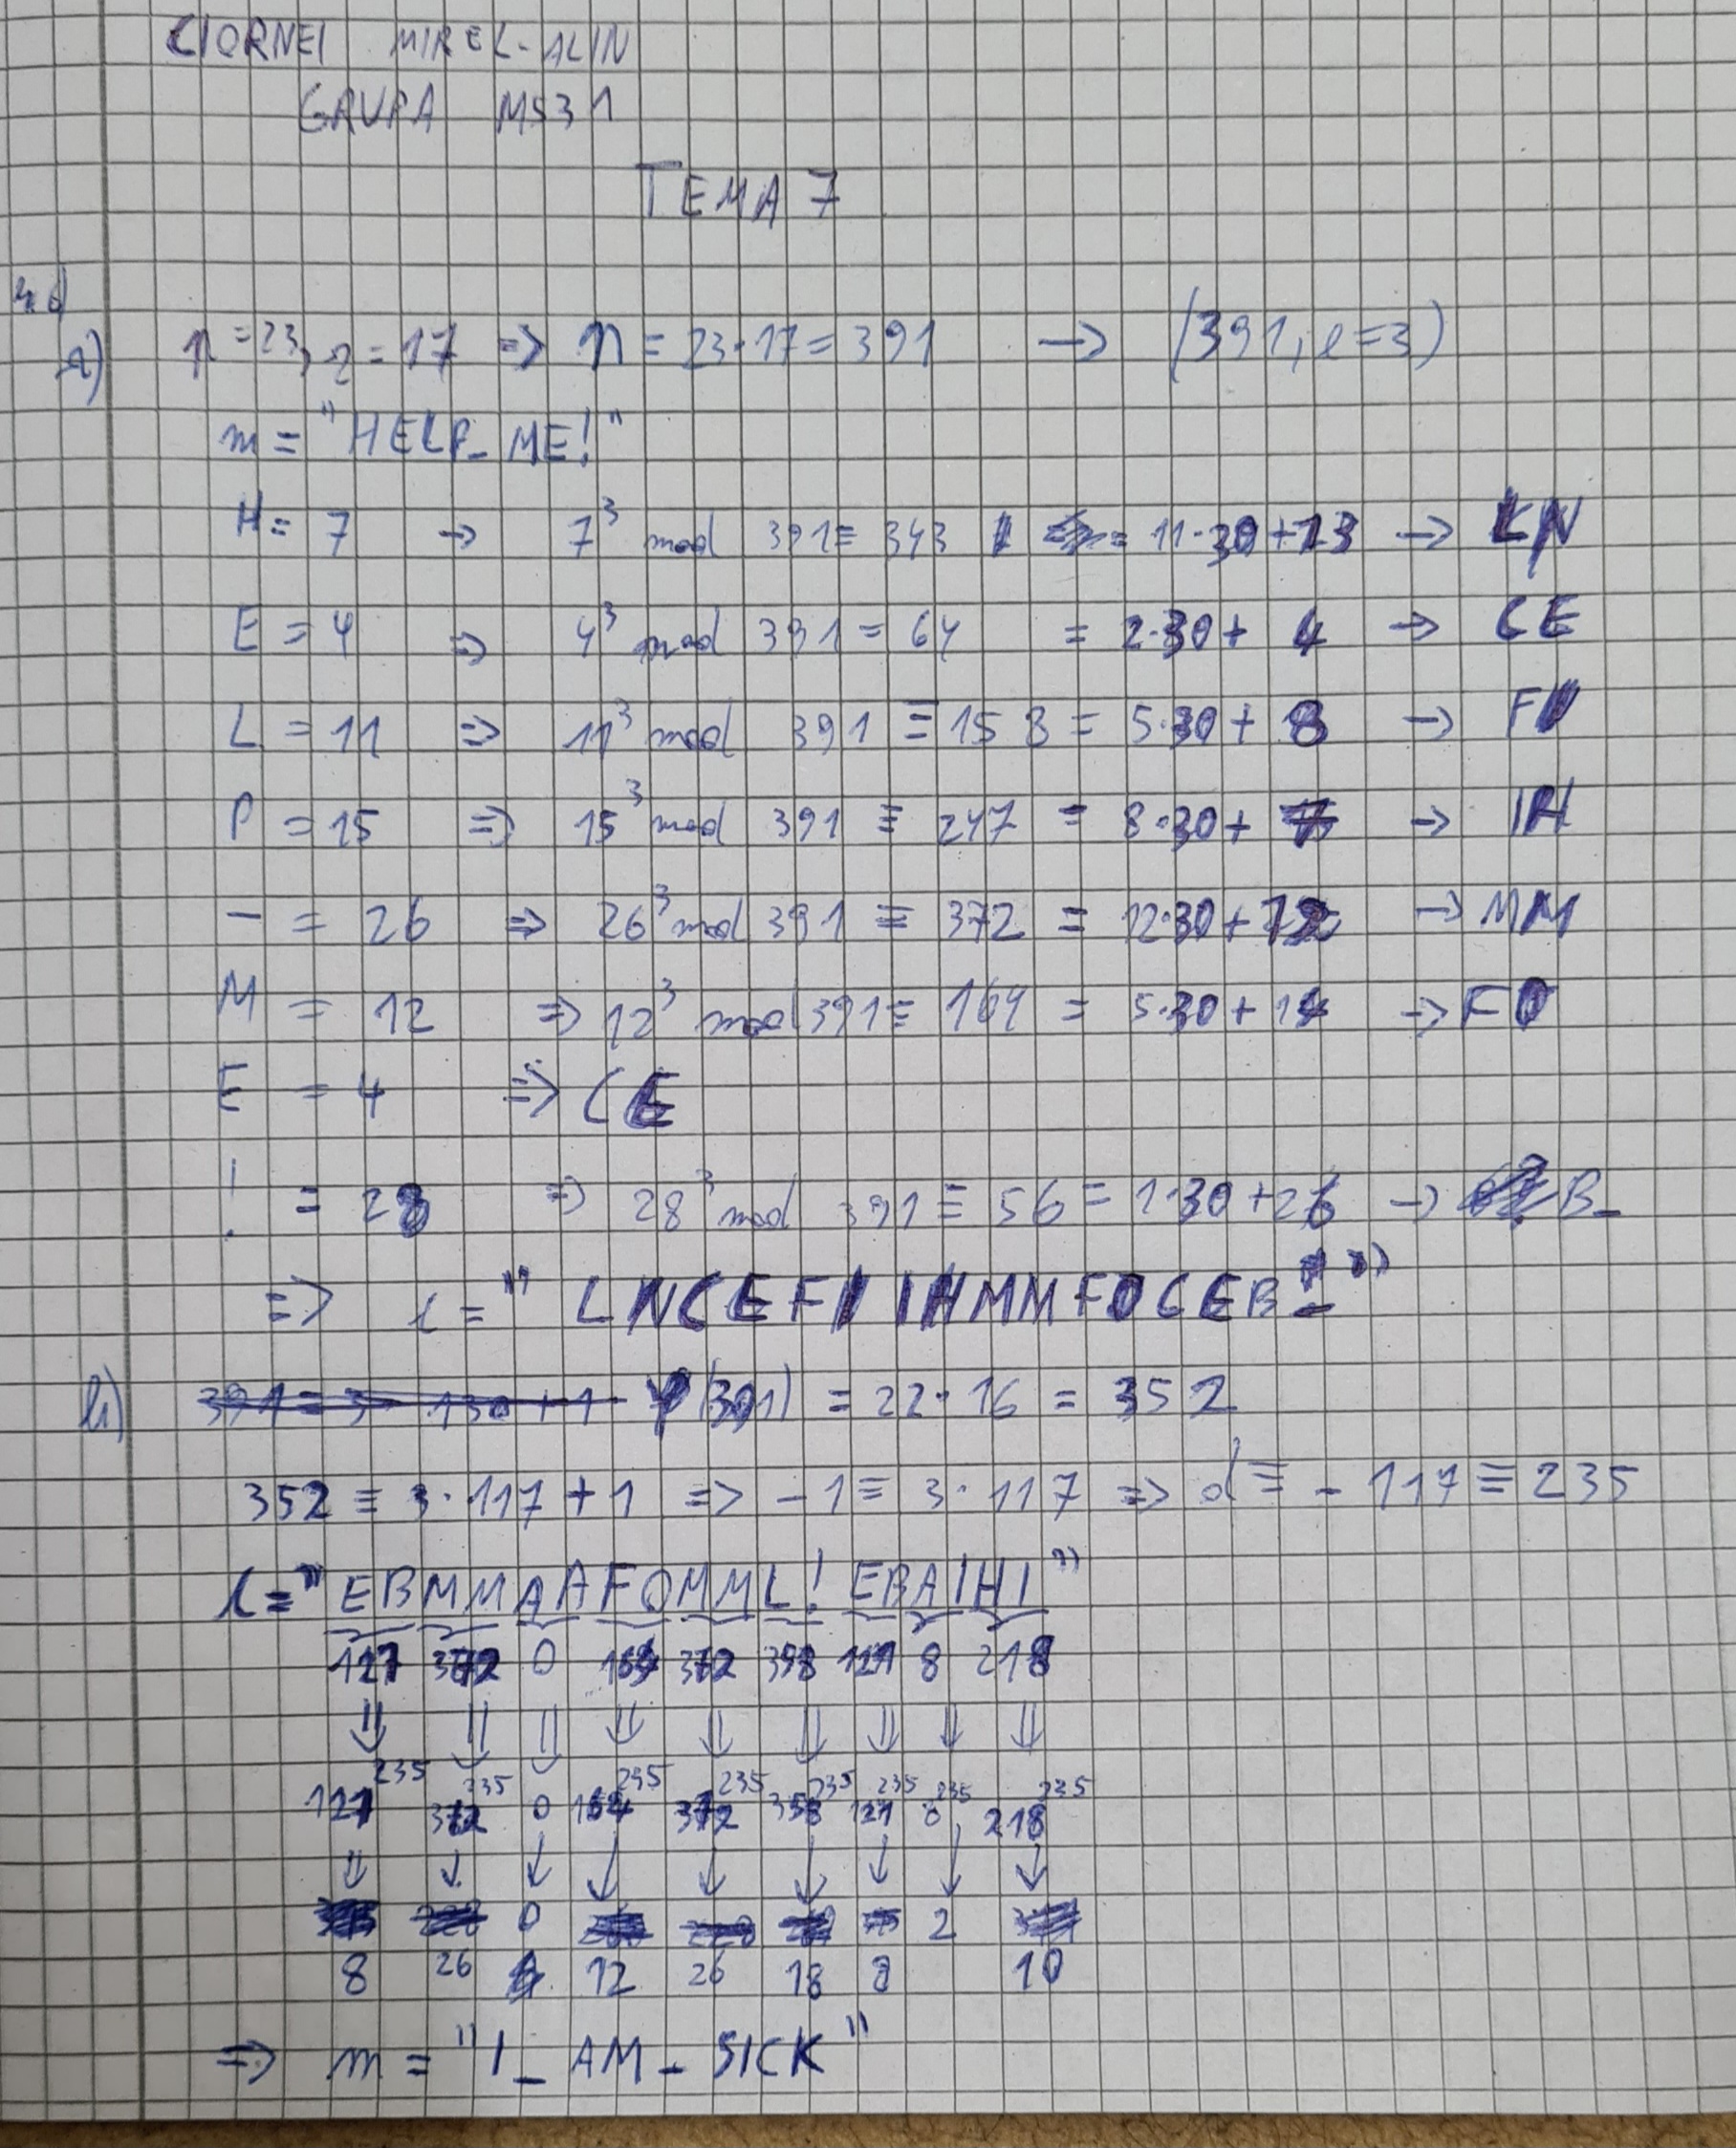 CIORNEI MIREL-ALIN
GRUPA M531
TEMA 7
a) p=23, q=17 => n = 23·17=391 → (391, e=3)
m = "HELP_ME!"
H = 7 → 7³ mod 391 ≡ 343 = 11·30+13 → LN
E = 4 => 4³ mod 391 = 64 = 2·30+ 4 → CE
L = 11 => 11³ mod 391 ≡ 158 = 5·30+ 8 → FI
P = 15 => 15³ mod 391 ≡ 247 = 8·30+ 7 → IH
_ = 26 => 26³ mod 391 ≡ 372 = 12·30+12 → MM
M = 12 => 12³ mod 391 ≡ 164 = 5·30+14 → FO
E = 4 => CE
! = 28 => 28³ mod 391 ≡ 56 = 1·30+26 → B_
=> c = "LNCEFIIHMMFOCEB_"
b) 391 = 3· 130+1 φ(391) = 22·16 = 352
352 ≡ 3·117+1 => -1 ≡ 3·117 => d ≡ -117 ≡ 235
c = "EBMMAAFOMML!EBAIHI"
121 372 0 164 372 358 121 8 218
⇓ ⇓ ⇓ ⇓ ⇓ ⇓ ⇓ ⇓ ⇓
121²³⁵ 372²³⁵ 0 164²³⁵ 372²³⁵ 358²³⁵ 121²³⁵ 8²³⁵ 218²³⁵
⇓ ↓ ↓ ↓ ↓ ↓ ↓ ↓ ↓
0 2
8 26 12 26 18 8 10
=> m = "I_AM_SICK"